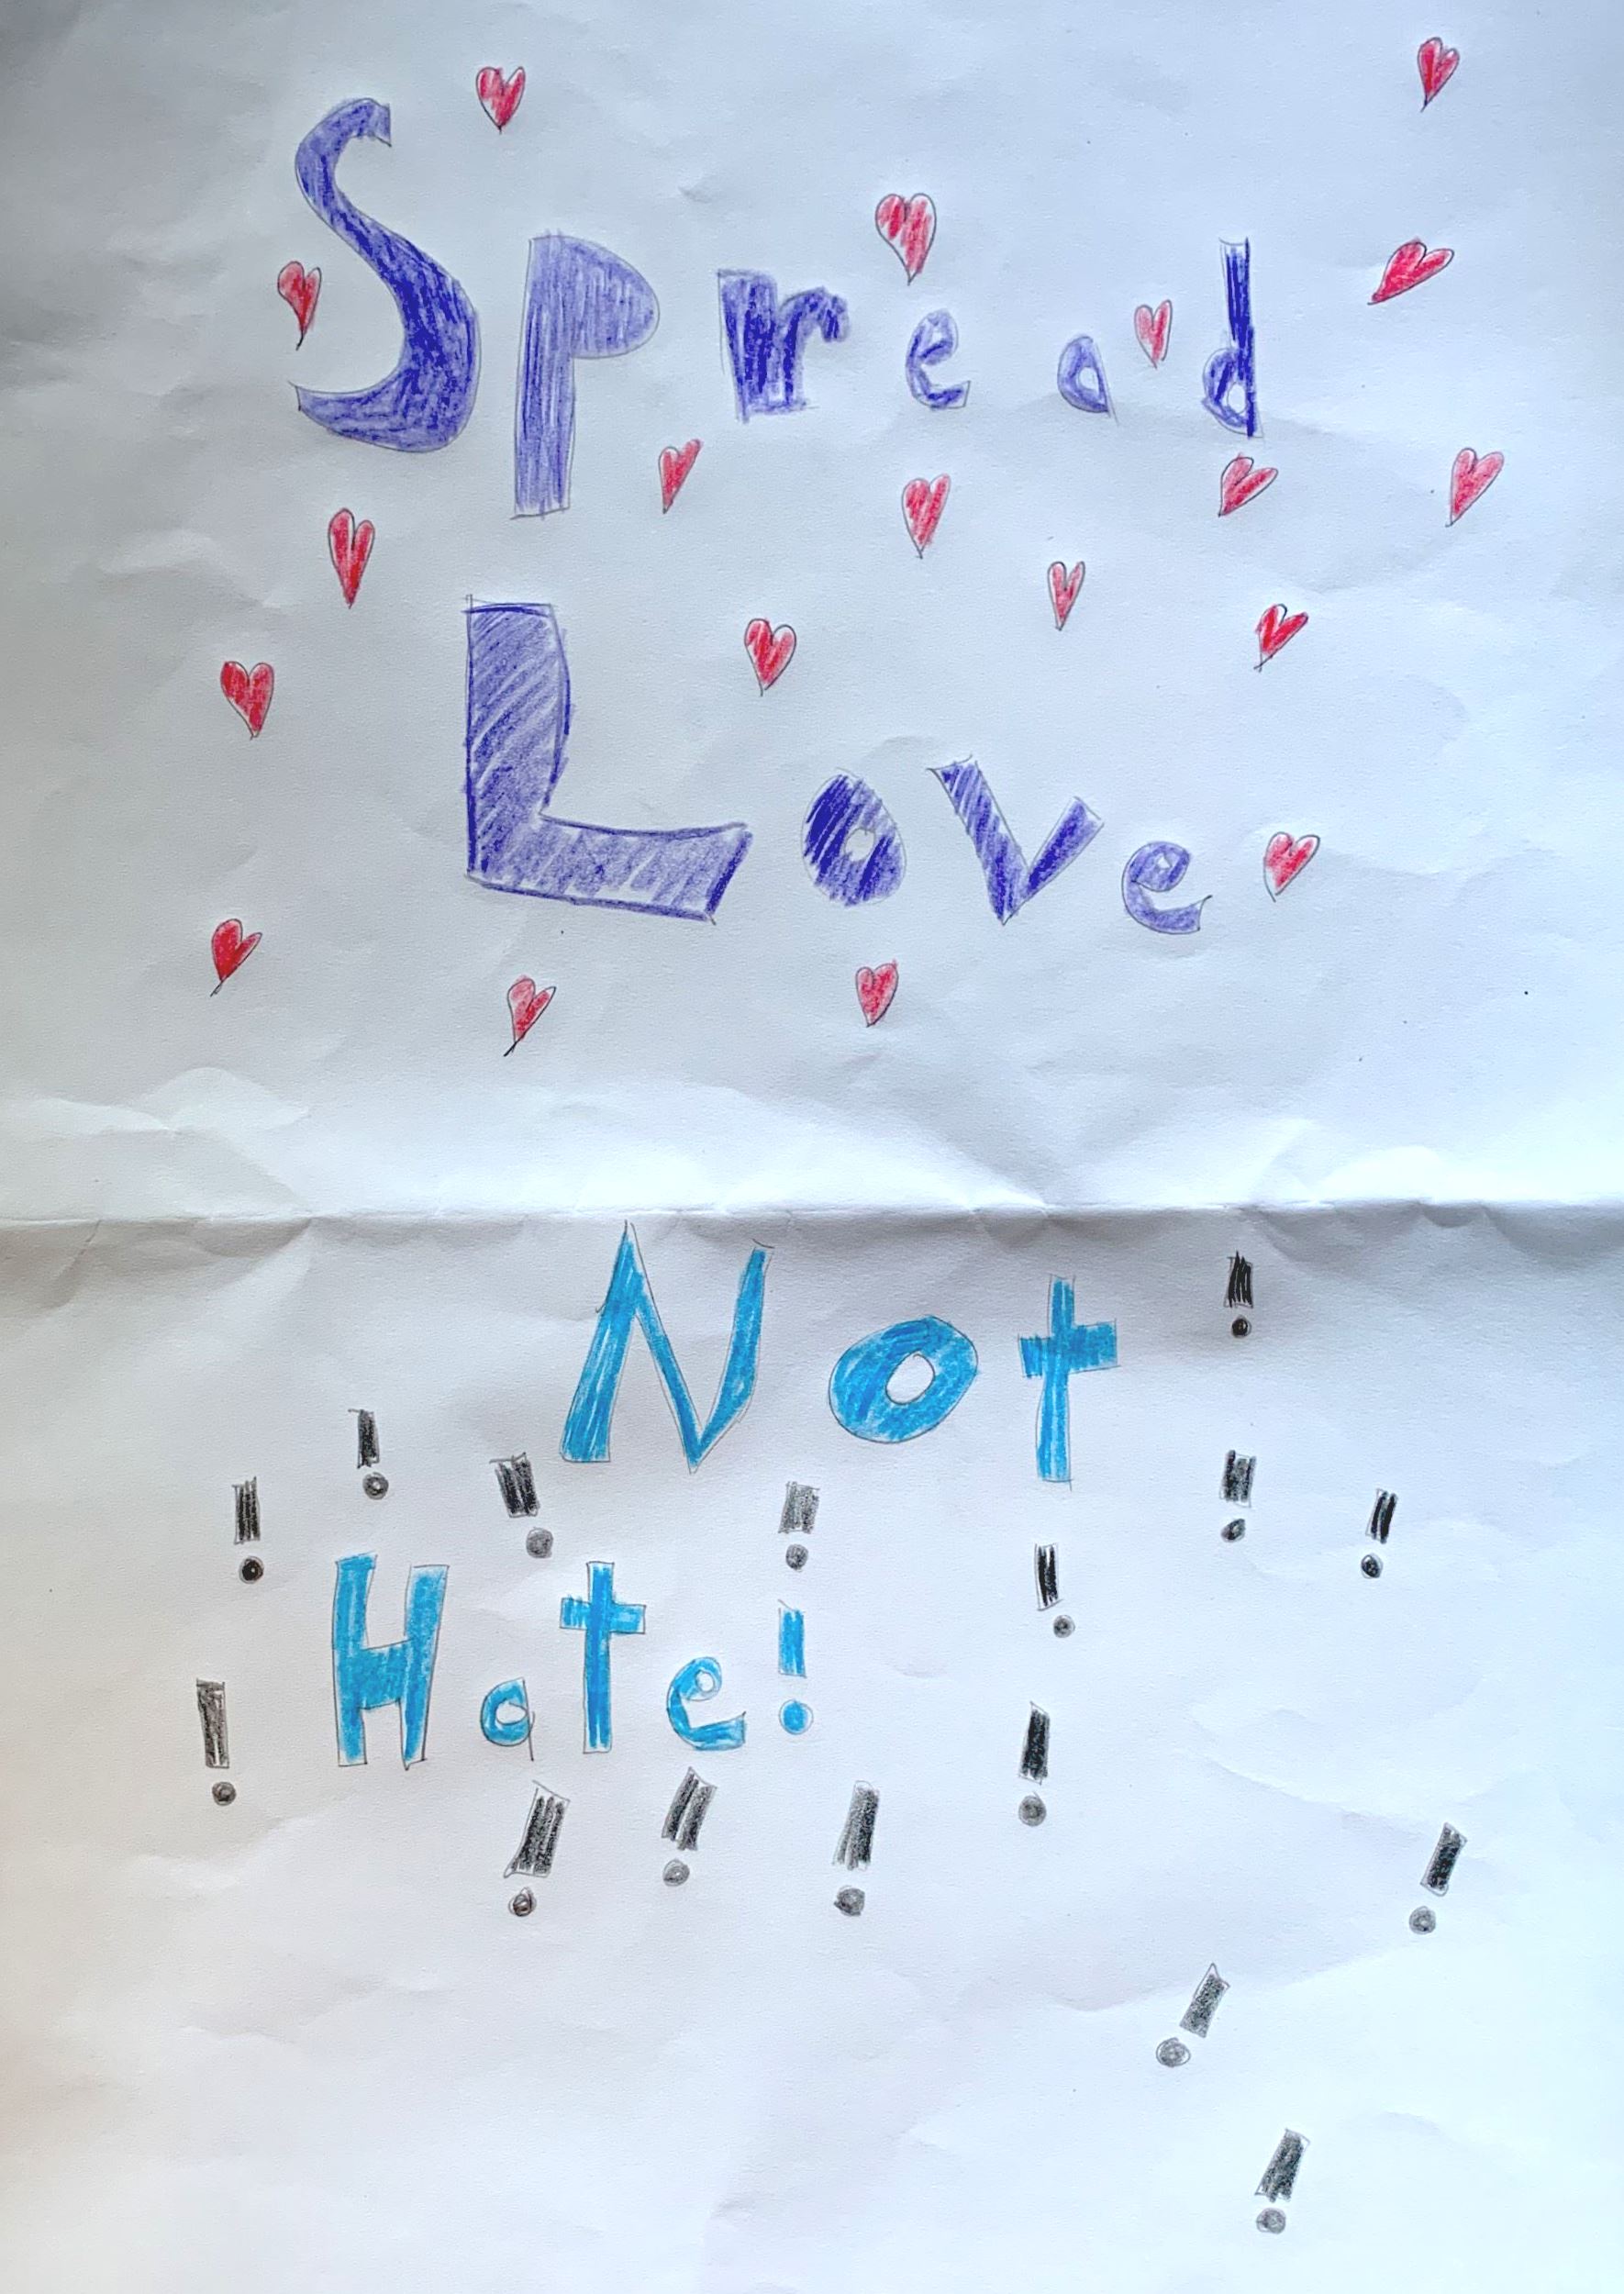 Spread
Love
Not
Hate!